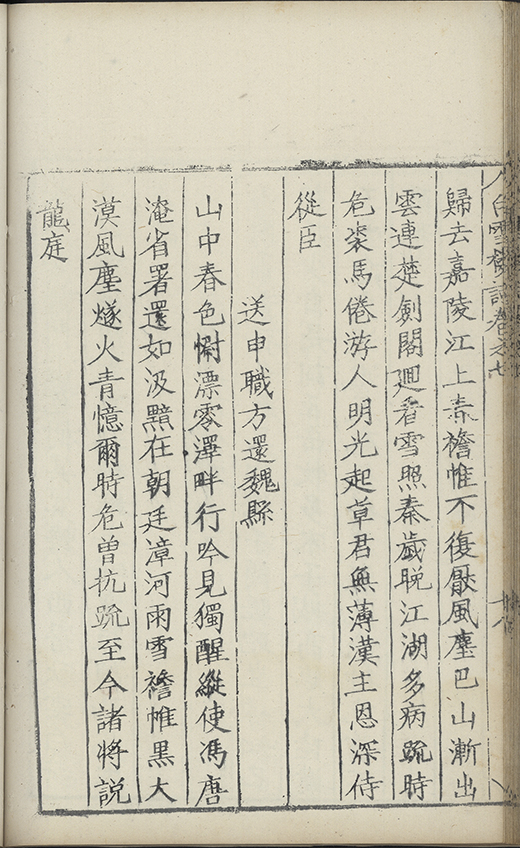 白雪樓詩卷之七
歸去嘉陵江上春襜帷不復厭風塵巴山漸出
雲連楚劍閣廻看雪照秦歲晚江湖多病踈時
危裘馬倦游人明光起草君無薄漢主恩深侍
從臣
送申職方還魏縣
山中春色慰漂零澤畔行吟見獨醒縱使馮唐
淹省署還如汲黯在朝廷漳河雨雪襜帷黑大
漠風塵燧火青憶爾時危曾抗踈至今諸將説
龍庭